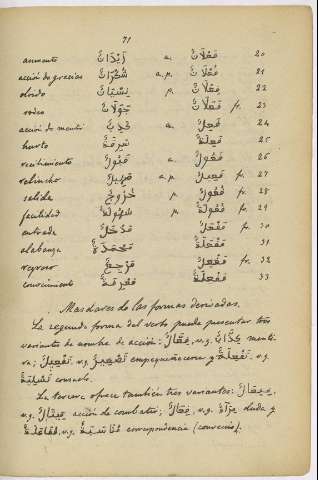 71
aumento زَيْدَانٌ a. فَعَلَانٌ 20
acción de gracias شُكْرَانٌ a.p. فُعْلَانٌ 21
olvido نِسْيَانٌ p. فِعْلَانٌ 22
rodeo جَوَلَانٌ fr. فَعَلَانٌ 23
acción de mentir كَذِبٌ a. فَعِلٌ 24
hurto سَرِقَةٌ فَعِلَةٌ 25
recibimiento قَبُولٌ a. فَعُولٌ 26
relincho صَهِيلٌ a.p. فَعِيلٌ fr. 27
salida خُرُوجٌ p. فُعُولٌ fr. 28
facilidad سُهُولَةٌ p. فُعُولَةٌ fr. 29
entrada مَدْخَلٌ مَفْعَلٌ fr. 30
alabanza مَحْمَدَةٌ مَفْعَلَةٌ 31
regreso مَرْجِعٌ مَفْعِلٌ fr. 32
conocimiento مَعْرِفَةٌ مَفْعِلَةٌ 33
Masdares de las formas derivadas.
La segunda forma del verbo puede presentar tres
variantes de nombre de acción: فِعَّالٌ, v.g. كِذَّابٌ menti-
ra; تَفْعِيلٌ, v.g. تَصْغِيرٌ empequeñecer y تَفْعِلَةٌ v.g.
تَسْلِيَةٌ consuelo.
La tercera ofrece también tres variantes: فِيعَالٌ,
v.g. قِيتَالٌ acción de combatir; فِعَالٌ, v.g. مِرَاءٌ duda y
مُفَاعَلَةٌ, v.g. correspondencia (convenio).